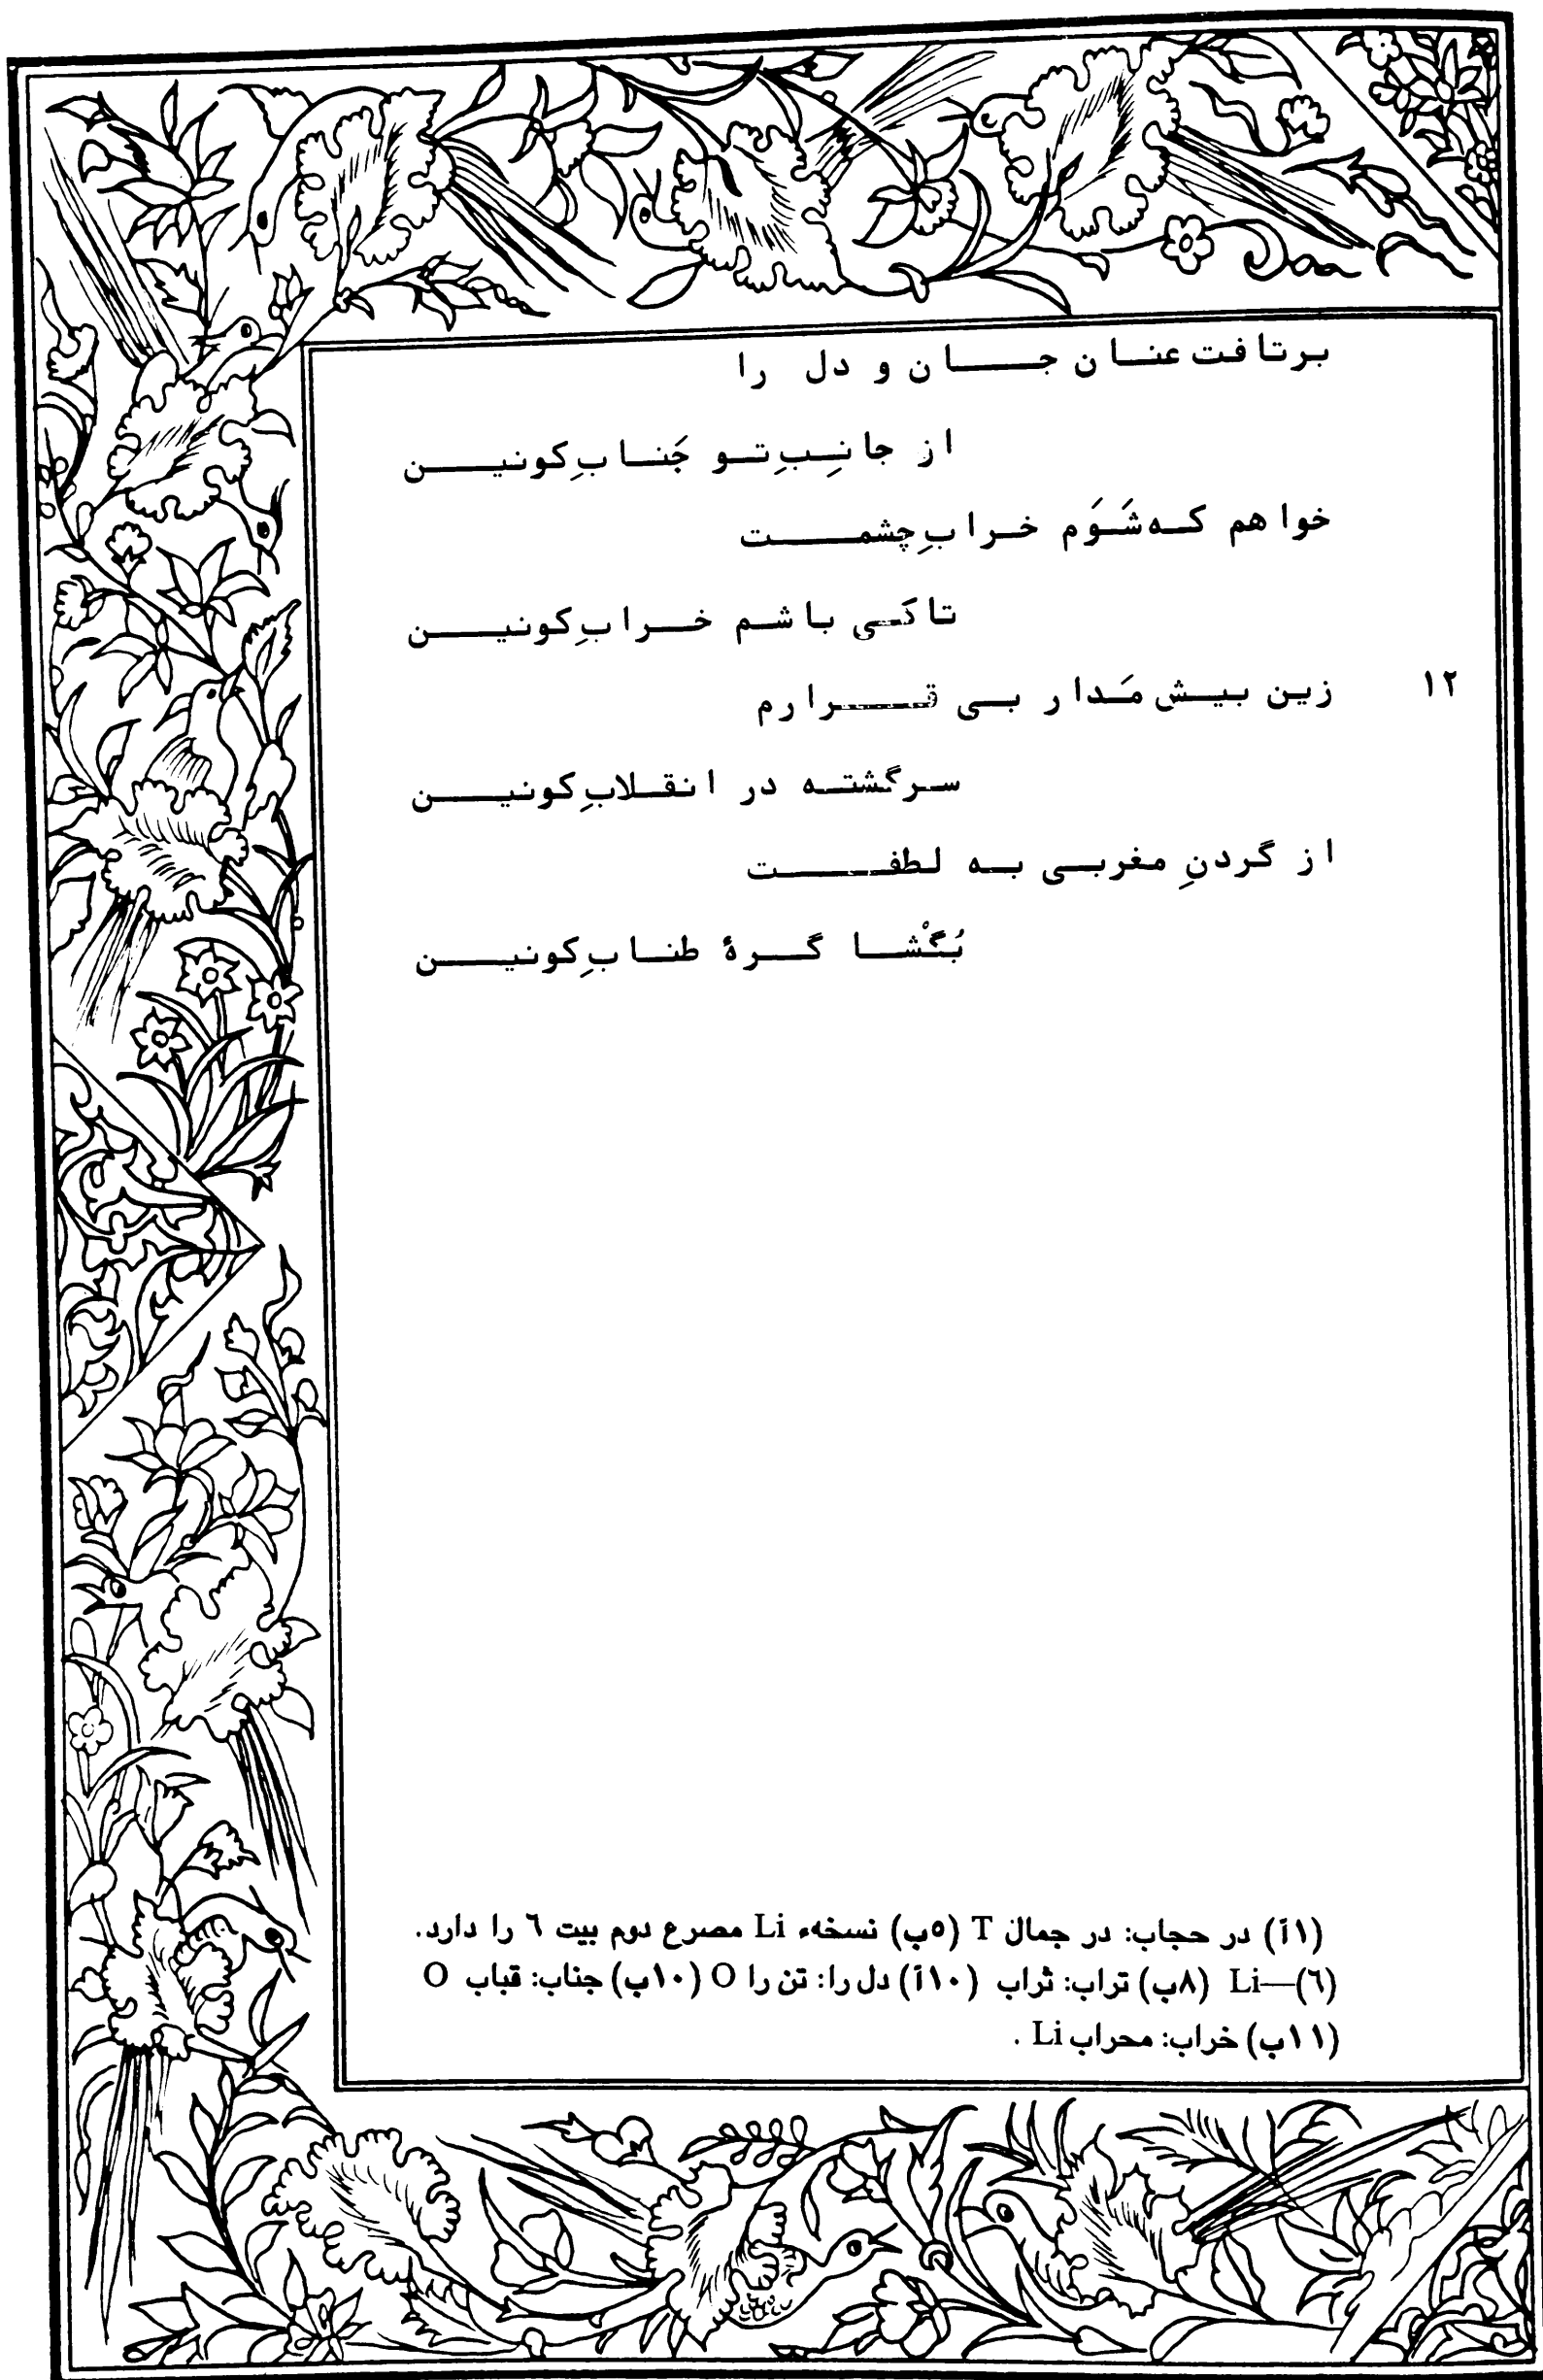 برتافت عنان جان و دل را
از جانِبِ تو جَنابِ کونین
خواهم که شَوَم خرابِ چشمت
تا کی باشم خرابِ کونین
۱۲ زین بیش مَدار بی قرارم
سرگشته در انقلابِ کونین
از گردنِ مغربی به لطفت
بُگْشا گرهٔ طنابِ کونین
(۱آ) در حجاب: در جمال T (۵ب) نسخهء Li مصرع دوم بیت ٦ را دارد.
(٦)—Li (۸ب) تراب: ثراب (۱۰آ) دل را: تن را O (۱۰ب) جناب: قباب O
(۱۱ب) خراب: محراب Li .